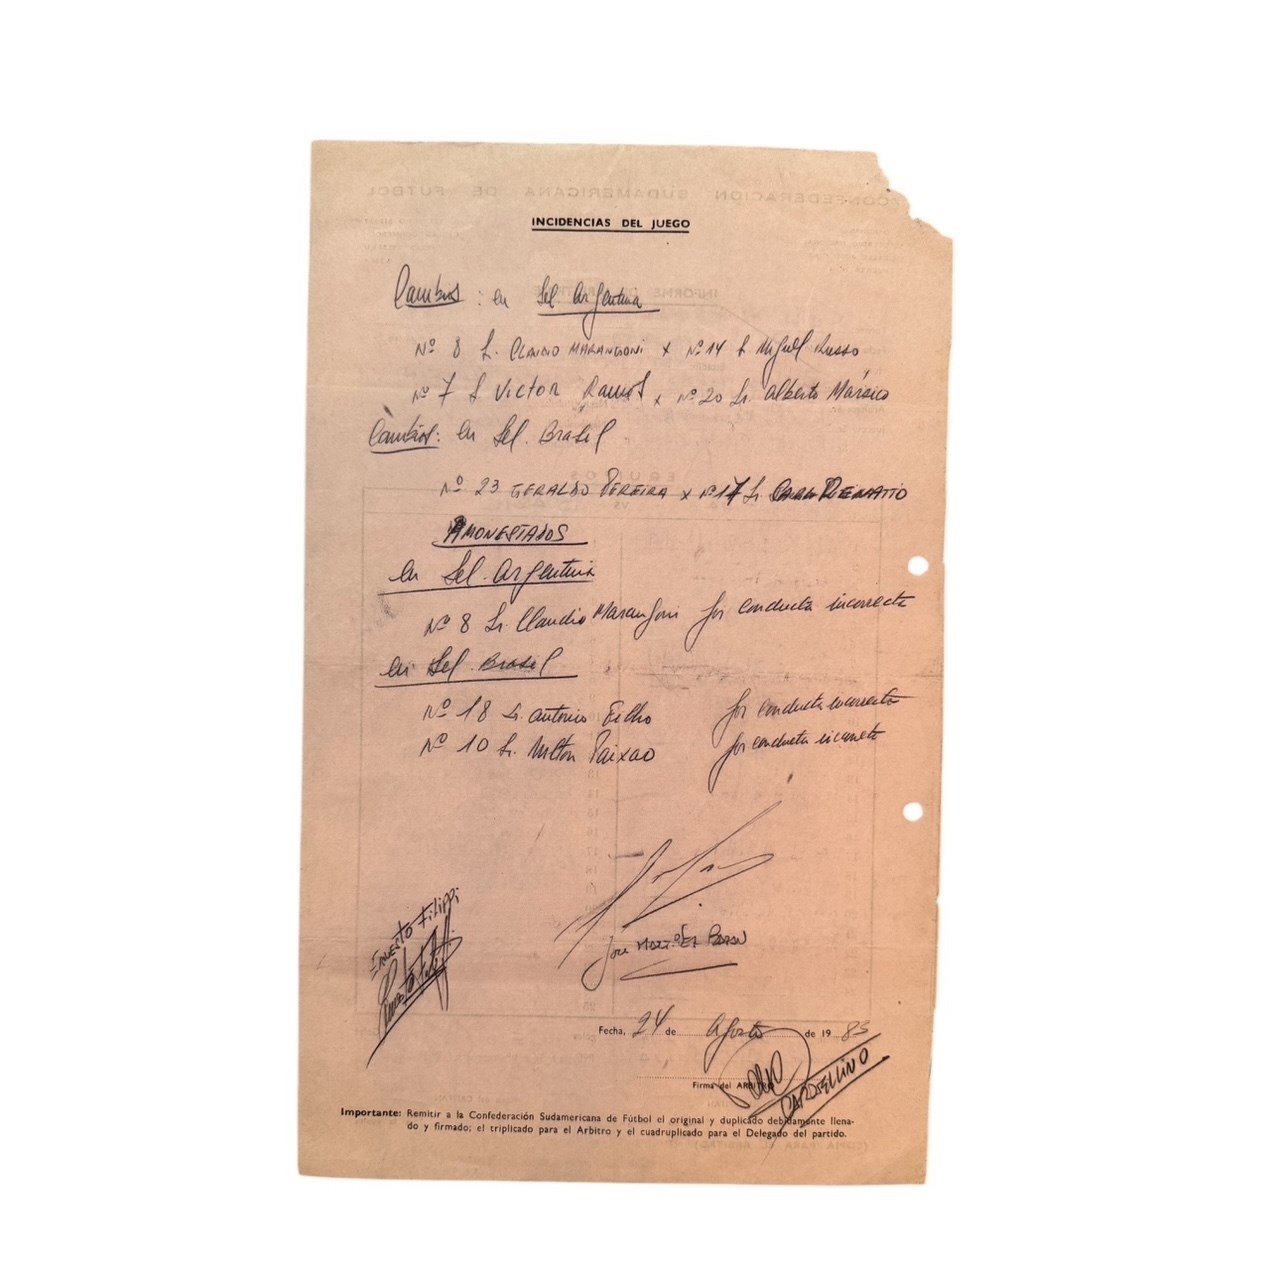 INCIDENCIAS DEL JUEGO
Cambios: en Sel. Argentina
Nº 8 Sr. CLAUDIO MARANGONI x Nº 14 Sr Miguel Russo
Nº 7 Sr Victor Ramos x Nº 20 Sr. Alberto Mársico
Cambios: en Sel. Brasil
Nº 23 GERALDO PEREIRA x Nº 17 Sr. RENATTO
AMONESTADOS
en Sel. Argentina
Nº 8 Sr. Claudio Marangoni por conducta incorrecta
en Sel. Brasil
Nº 18 Sr. Antonio Filho por conducta incorrecta
Nº 10 Sr. Milton Paixao por conducta incorrecta
ERNESTO FILIPPI
José MARTINEZ BAZAN
Fecha, 24 de Agosto de 19 83
Firma del ARBITRO
CARDELLINO
Importante: Remitir a la Confederación Sudamericana de Fútbol el original y duplicado debidamente llena-
do y firmado; el triplicado para el Arbitro y el cuadruplicado para el Delegado del partido.